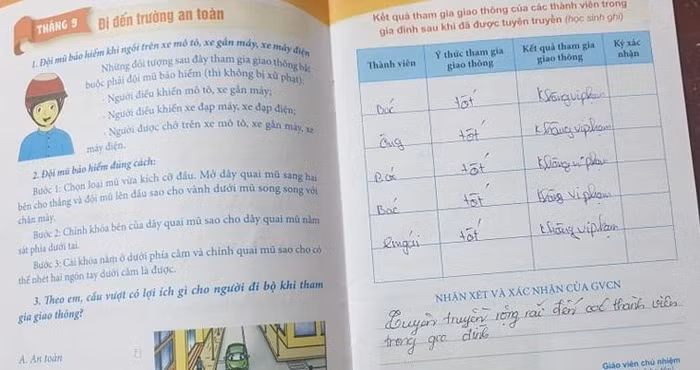 THÁNG 9
Đi đến trường an toàn
1. Đội mũ bảo hiểm khi ngồi trên xe mô tô, xe gắn máy, xe máy điện
Những đối tượng sau đây tham gia giao thông bắt
buộc phải đội mũ bảo hiểm (thì không bị xử phạt):
- Người điều khiển mô tô, xe gắn máy;
- Người điều khiển xe đạp máy, xe đạp điện;
- Người được chở trên xe mô tô, xe gắn máy, xe
máy điện.
2. Đội mũ bảo hiểm đúng cách:
Bước 1: Chọn loại mũ vừa kích cỡ đầu. Mở dây quai mũ sang hai
bên cho thẳng và đội mũ lên đầu sao cho vành dưới mũ song song với
chân mày.
Bước 2: Chỉnh khóa bên của dây quai mũ sao cho dây quai mũ nằm
sát phía dưới tai.
Bước 3: Cài khóa nằm ở dưới phía cằm và chỉnh quai mũ sao cho có
thể nhét hai ngón tay dưới cằm là được.
3. Theo em, cầu vượt có lợi ích gì cho người đi bộ khi tham
gia giao thông?
A. An toàn
Kết quả tham gia giao thông của các thành viên trong
gia đình sau khi đã được tuyên truyền (học sinh ghi)
Thành viên Ý thức tham gia giao thông Kết quả tham gia giao thông Ký xác nhận
Bác tốt không vi phạm
Ông tốt không vi phạm
Bà tốt không vi phạm
Bác tốt không vi phạm
Em gái tốt không vi phạm
NHẬN XÉT VÀ XÁC NHẬN CỦA GVCN
Tuyên truyền rộng rãi đến các thành viên
trong gia đình
Giáo viên chủ nhiệm